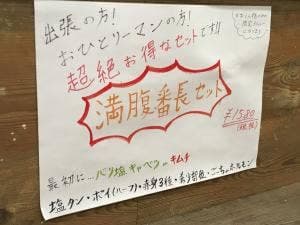 出張の方!
おひとリーマンの方!
超絶お得なセットです!!
満腹番長セット
¥1580
(税抜)
最初に… パリ塩キャベツ or キムチ
塩タン・ボイ(ハーフ)・赤身3種・希少部位・こっちゃホルモン